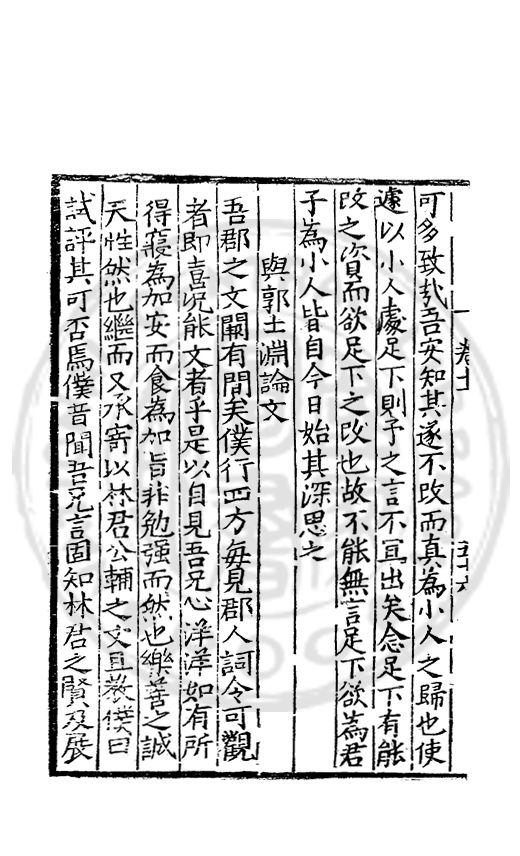 卷十
可多致哉吾安知其遂不改而真為小人之歸也使
遽以小人處足下則予之言不宜出矣念足下有能
改之資而欲足下之改也故不能無言足下欲為君
子為小人皆自今日始其深思之
與郭士淵論文
吾郡之文闕有間矣僕行四方每見郡人詞令可觀
者即喜況能文者乎是以自見吾兄心洋洋如有所
得寢為加安而食為加旨非勉强而然也樂善之誠
天性然也繼而又承寄以林君公輔之文且教僕曰
試評其可否焉僕昔聞吾兄言固知林君之賢及展